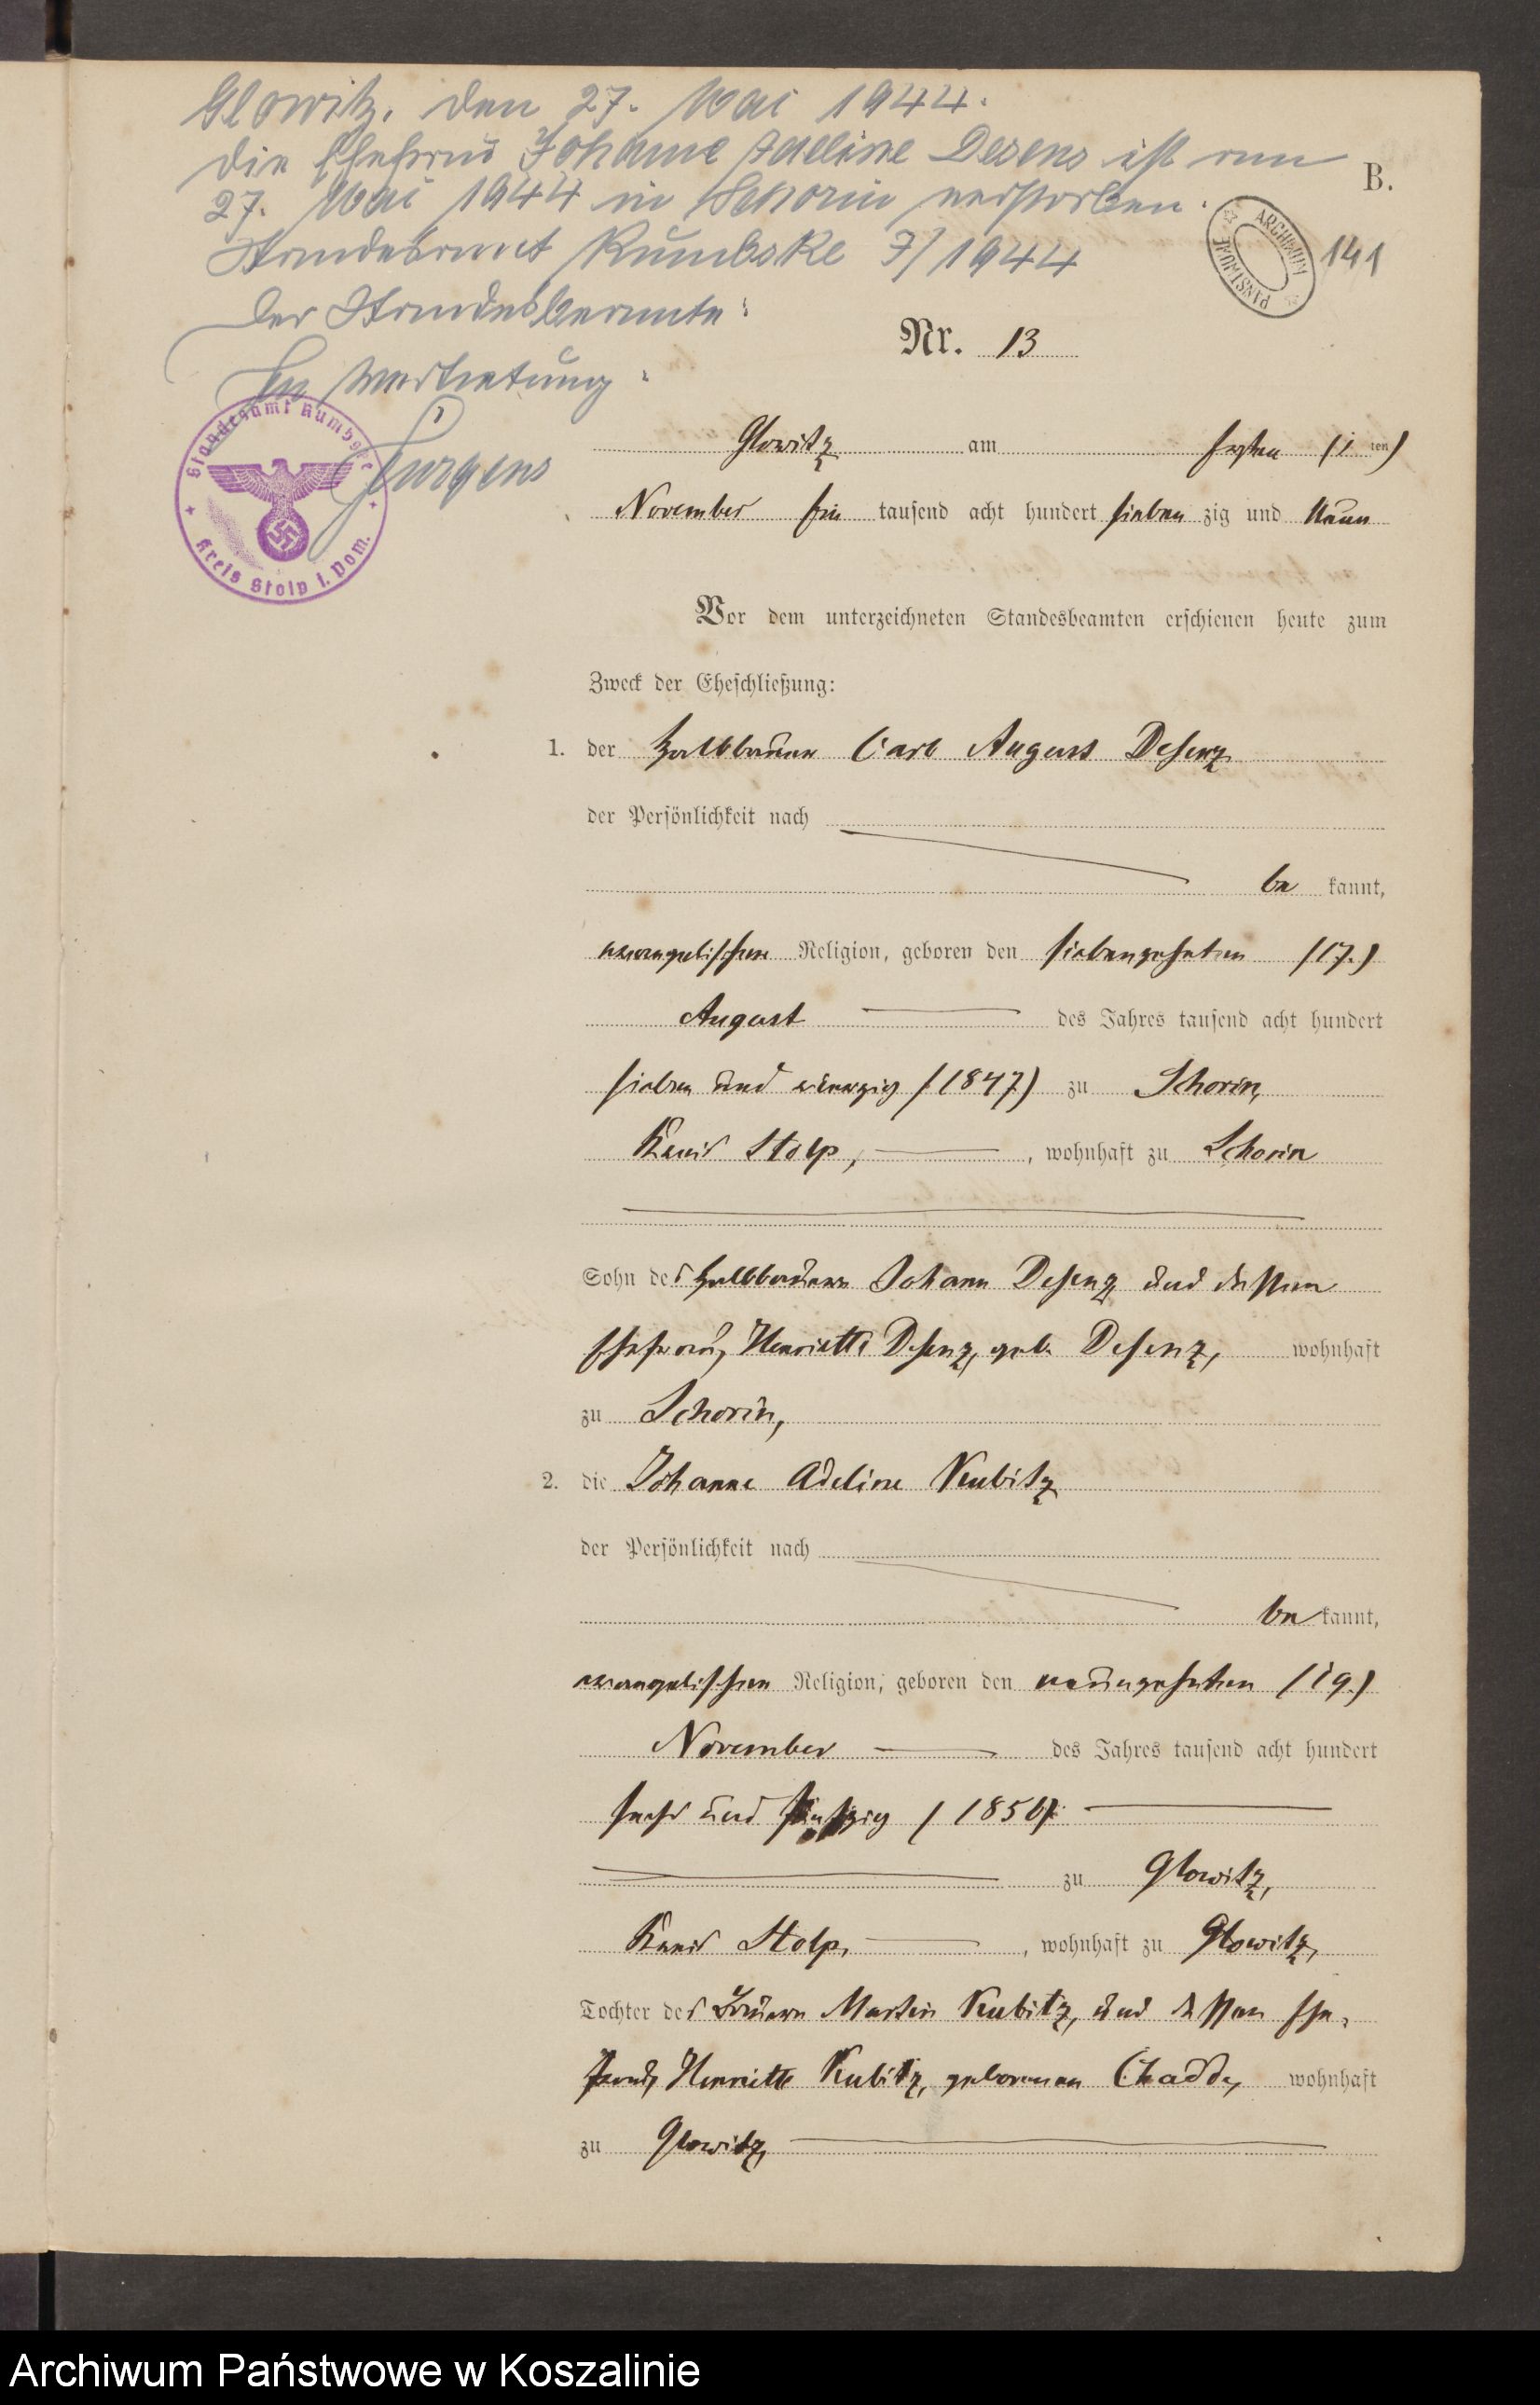 Glowitz, den 27. Mai 1944.
Die Ehefrau Johanne Adeline Desens ist am
27. Mai 1944 in Schorin verstorben.
Standesamt Rumbske 7/1944
Der Standesbeamte:
In Vertretung:
Jürgens
Standesamt Rumbske
Kreis Stolp i. Pom.
B.
ARCHIWUM PAŃSTWOWE
141
Nr. 13
Glowitz am ersten (1 ten)
November ein tausend acht hundert sieben zig und neun
Vor dem unterzeichneten Standesbeamten erschienen heute zum
Zweck der Eheschließung:
1. der Halbbauer Carl August Desenz
der Persönlichkeit nach
be kannt,
evangelischen Religion, geboren den siebenzehnten (17.)
August des Jahres tausend acht hundert
sieben und vierzig (1847) zu Schorin,
Kreis Stolp, , wohnhaft zu Schorin
Sohn des Halbbauern Johann Desenz und dessen
Ehefrau, Henriette Desenz, geb. Desenz, wohnhaft
zu Schorin,
2. die Johanne Adeline Kubitz
der Persönlichkeit nach
be kannt,
evangelischen Religion, geboren den neunzehnten (19.)
November des Jahres tausend acht hundert
sechs und fünfzig (1856)
zu Glowitz,
Kreis Stolp, , wohnhaft zu Glowitz,
Tochter des Bauern Martin Kubitz, und dessen Ehe-
frau, Henriette Kubitz, geborenen Chadde, wohnhaft
zu Glowitz,
Archiwum Państwowe w Koszalinie